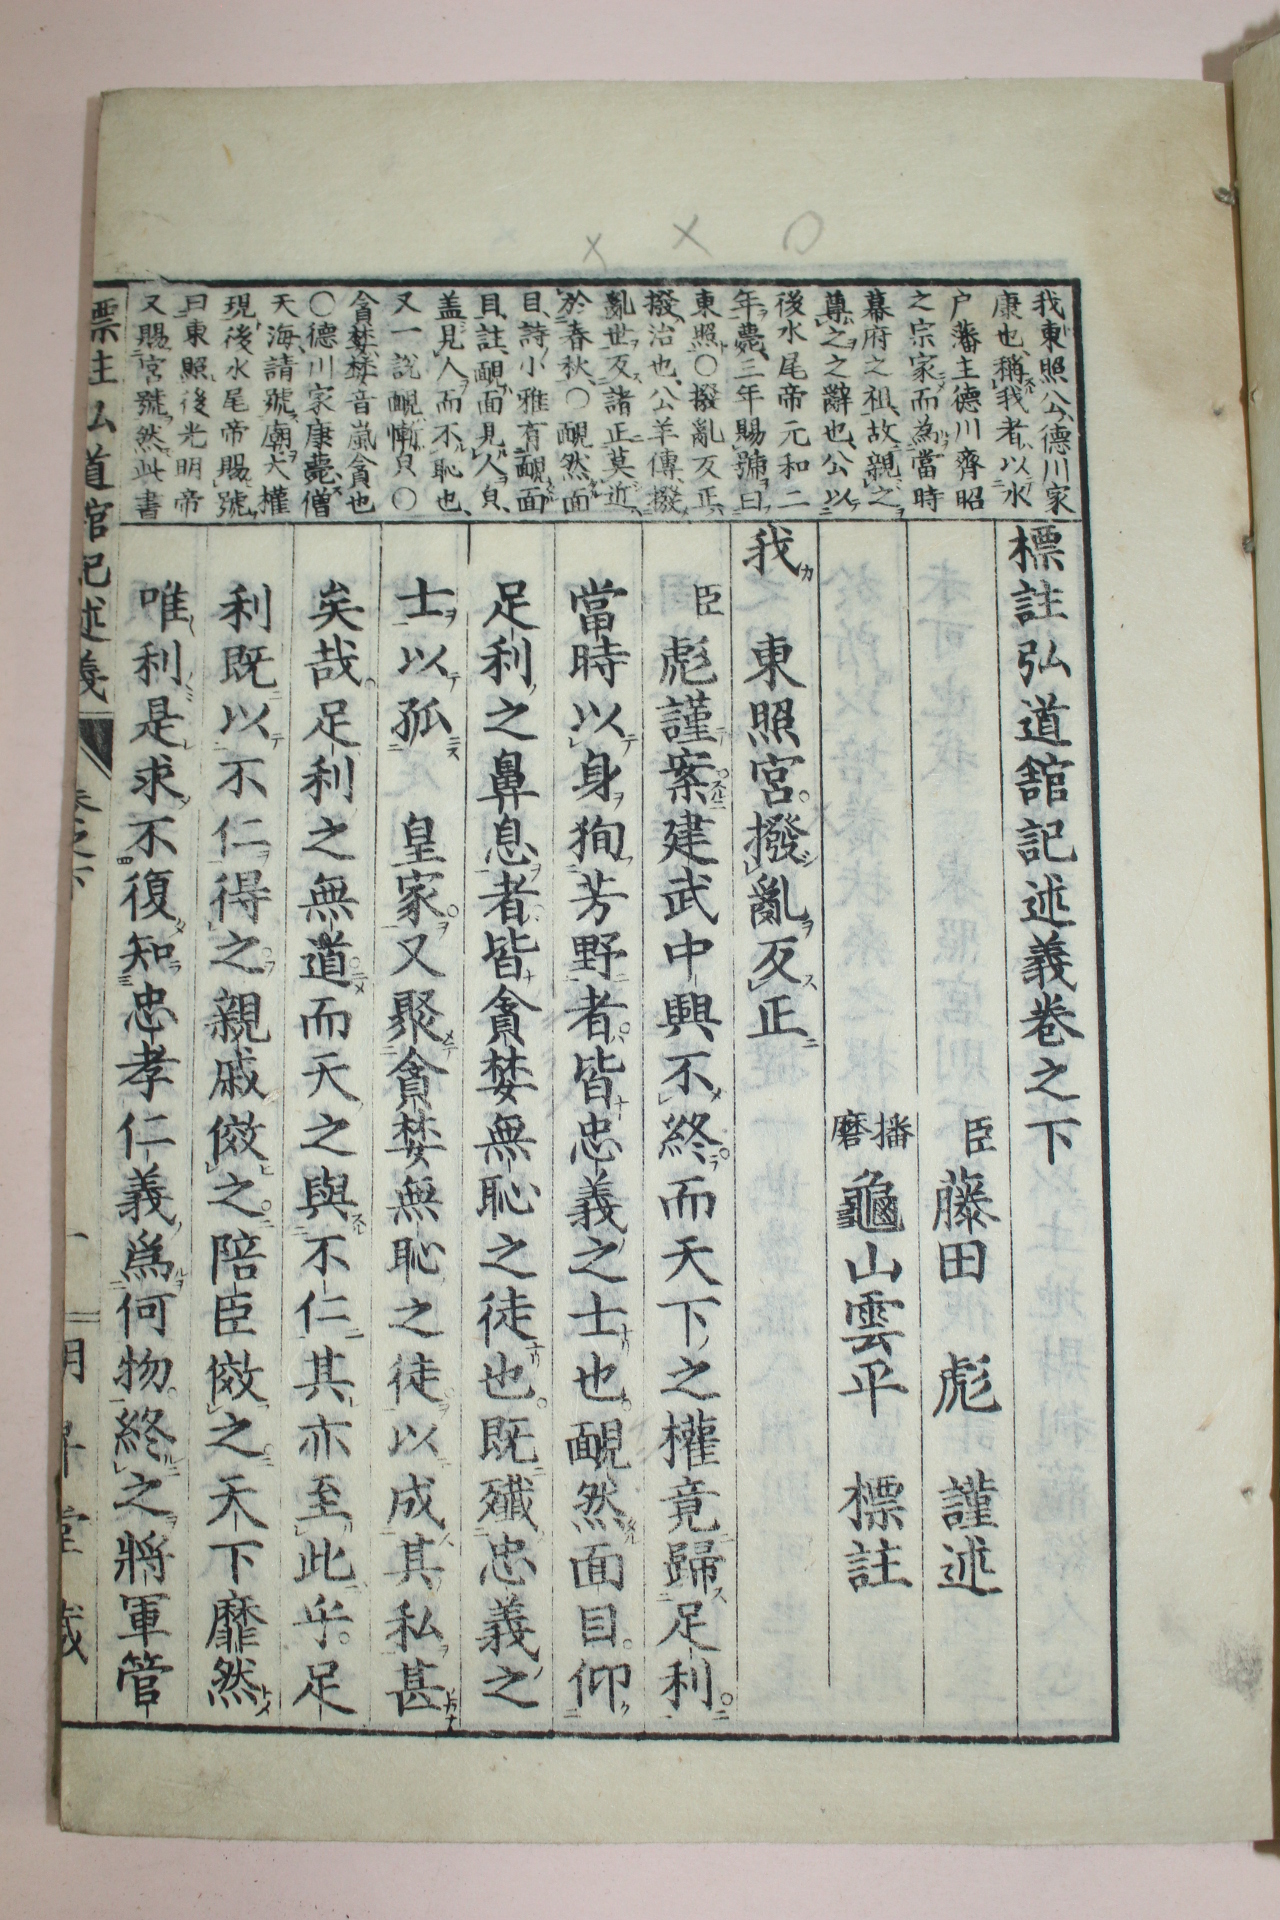 我東照公德川家
康也稱我者以水
户藩主德川齊昭
之宗家而為當時
幕府之祖故親之
尊之之辭也公以
後水尾帝元和二
年薨三年賜號曰
東照〇撥亂反正
撥治也公羊傳撥
亂世反諸正莫近
於春秋〇靦然面
目詩小雅有靦面
目註靦面見人皃
盖見人而不恥也
又一說靦慚皃〇
貪婪婪音嵐貪也
〇德川家康薨僧
天海請號廟大權
現後水尾帝賜號
曰東照後光明帝
又賜宮號然此書
標註弘道館記述義卷之下
臣藤田彪謹述
播磨龜山雲平標註
我東照宮撥亂反正
臣彪謹案建武中興不終而天下之權竟歸足利
當時以身狥芳野者皆忠義之士也靦然面目仰
足利之鼻息者皆貪婪無恥之徒也既殲忠義之
士以孤皇家又聚貪婪無恥之徒以成其私甚
矣哉足利之無道而天之與不仁其亦至此乎足
利既以不仁得之親戚傚之陪臣傚之天下靡然
唯利是求不復知忠孝仁義爲何物終之將軍管
標註弘道館記述義